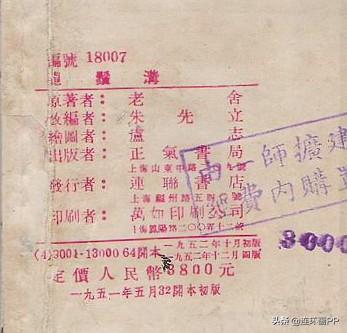 編號 18007
龍鬚溝
原著者：老舍
改編者：朱先立
繪圖者：盧志
出版者：正氣書局
上海山東中路
發行者：連聯書店
印刷者：萬如印刷公司
(4)3001-13000 64開本 一九五二年十月初版
一九五二年十二月四版
定價人民幣3800元
一九五一年五月32開本初版
師擴建
費內購
3800
头条 @连环画PP